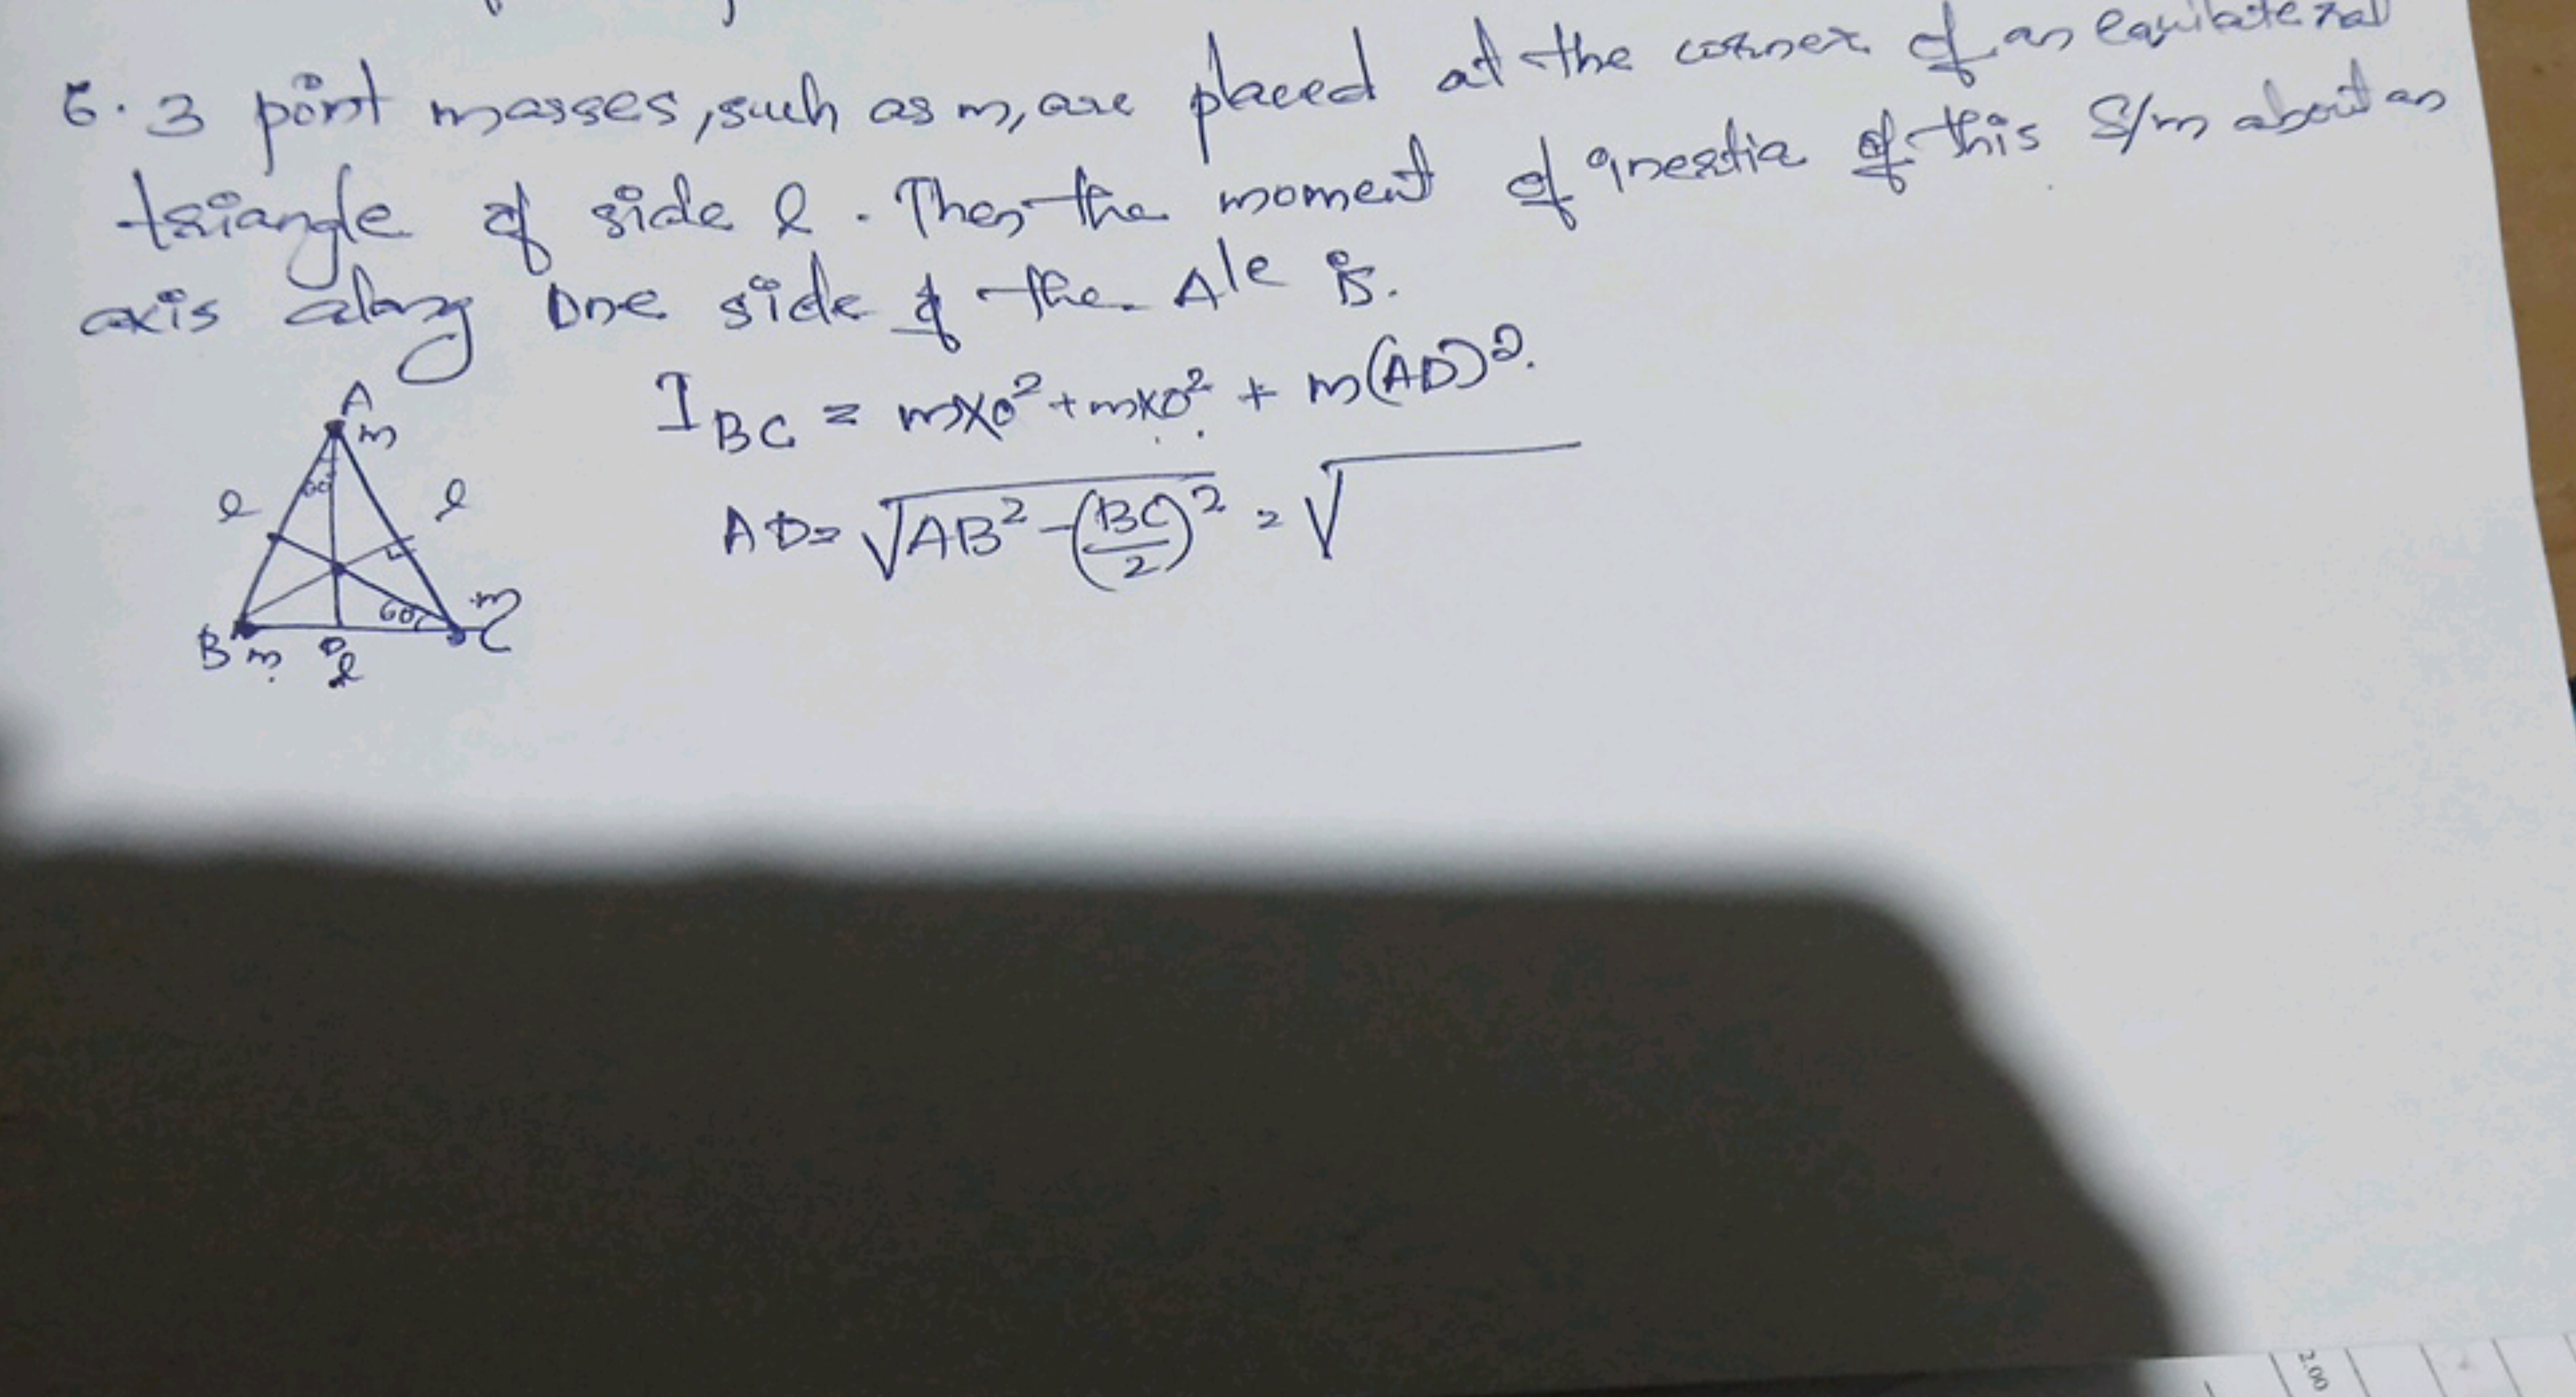 6. 3 point masses, such as m, are placed at the corner of an equilateral
triangle of side l. Then the moment of inertia of this S/m about an
axis along one side of the Δle is.
I BC = m×0² + m×0² + m(AD)².
AD = √AB² - (BC/2)² = √
A
m
60
l
l
60
m
B
m
D
l
C
2.00